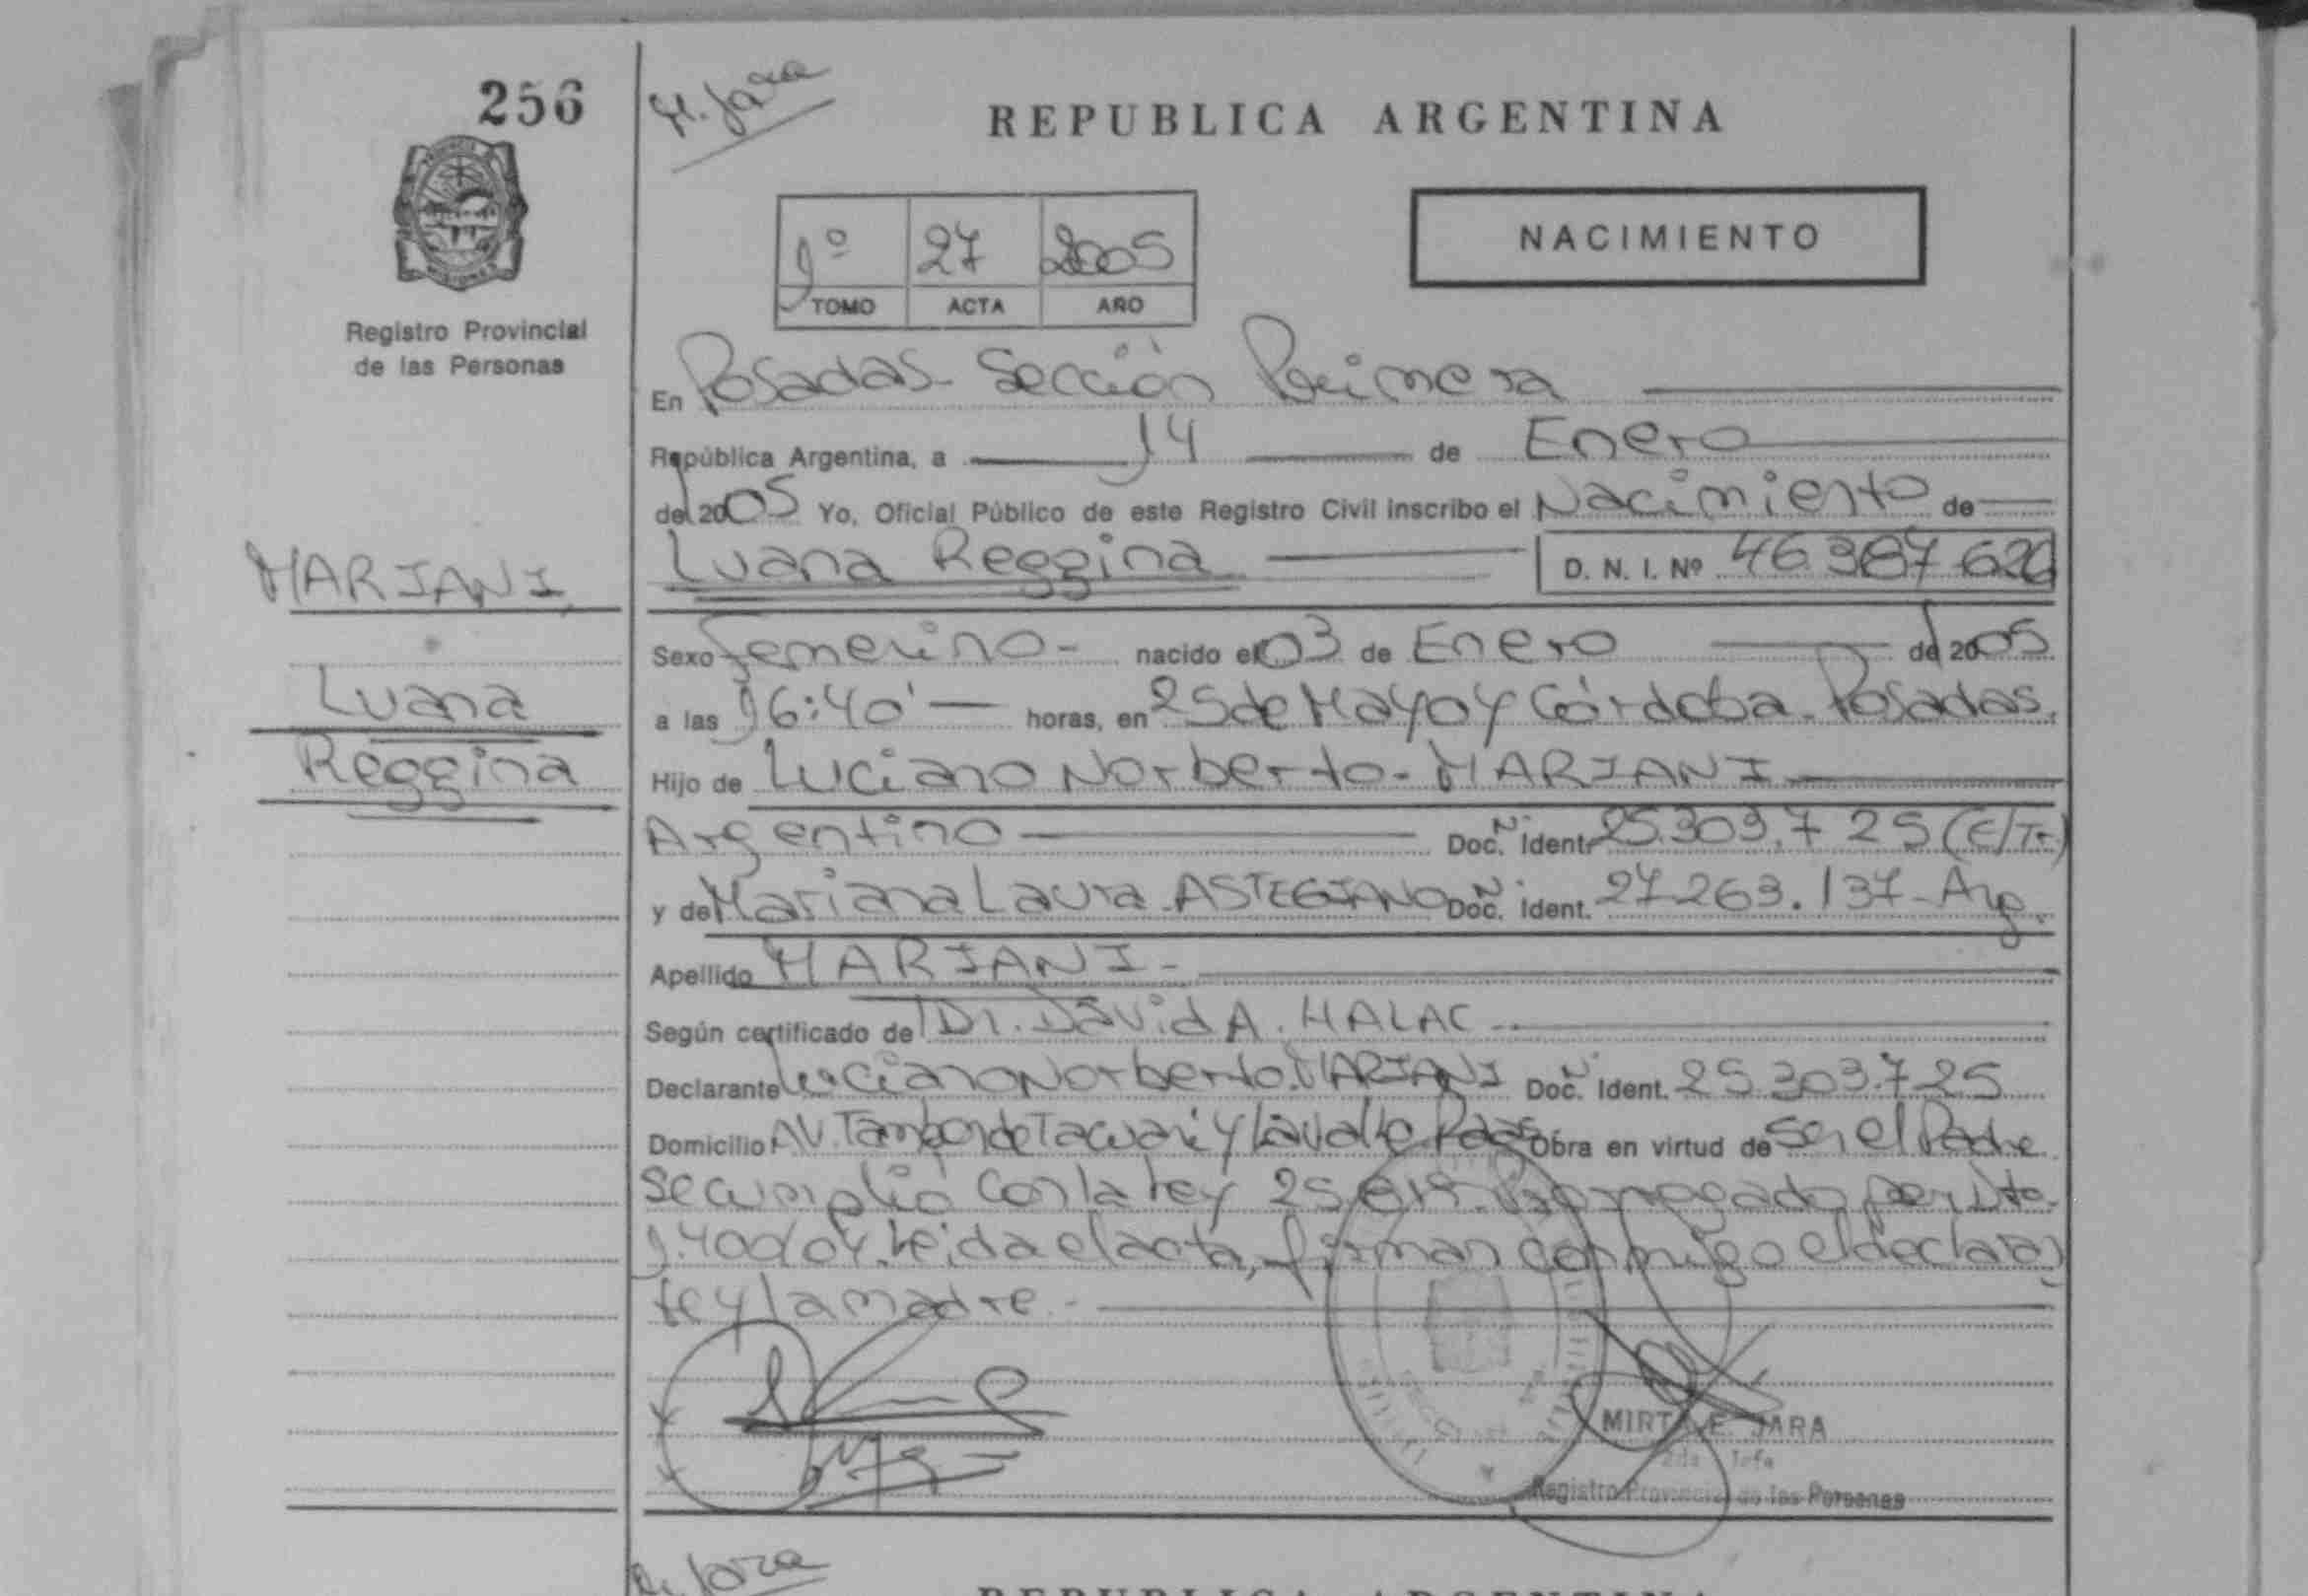 256
H. Jara
REPUBLICA ARGENTINA
1º 27 2005
TOMO ACTA AÑO
NACIMIENTO
Registro Provincial
de las Personas
En Posadas - Sección Primera
República Argentina, a 14 de Enero
del 2005 Yo, Oficial Público de este Registro Civil inscribo el Nacimiento de
Luana Reggina D. N. I. Nº 46.387.620
MARIANI,
Luana
Reggina
Sexo Femenino - nacido el 03 de Enero del 2005
a las 16:40' horas, en 25 de Mayo y Córdoba - Posadas.
Hijo de Luciano Norberto - MARIANI
Argentino Doc. Nº Ident. 25.303.725 (E/Tr)
y de Mariana Laura ASTEGIANO Doc. Nº Ident. 27.263.137 - Arg.
Apellido MARIANI -
Según certificado de Dr. David A. HALAC
Declarante Luciano Norberto MARIANI Doc. Nº Ident. 25.303.725
Domicilio AV. Tambor de Tacuarí y Lavalle Pdas. Obra en virtud de ser el Padre
Se cumplió con la Ley 25.819 Prorrogado por Dto.
1.400/04. Leída el acta, firman conmigo el declaran
te y la madre. -
MIRTA E. JARA
2da Jefa
Registro Provincial de las Personas
Jara
REPUBLICA ARGENTINA